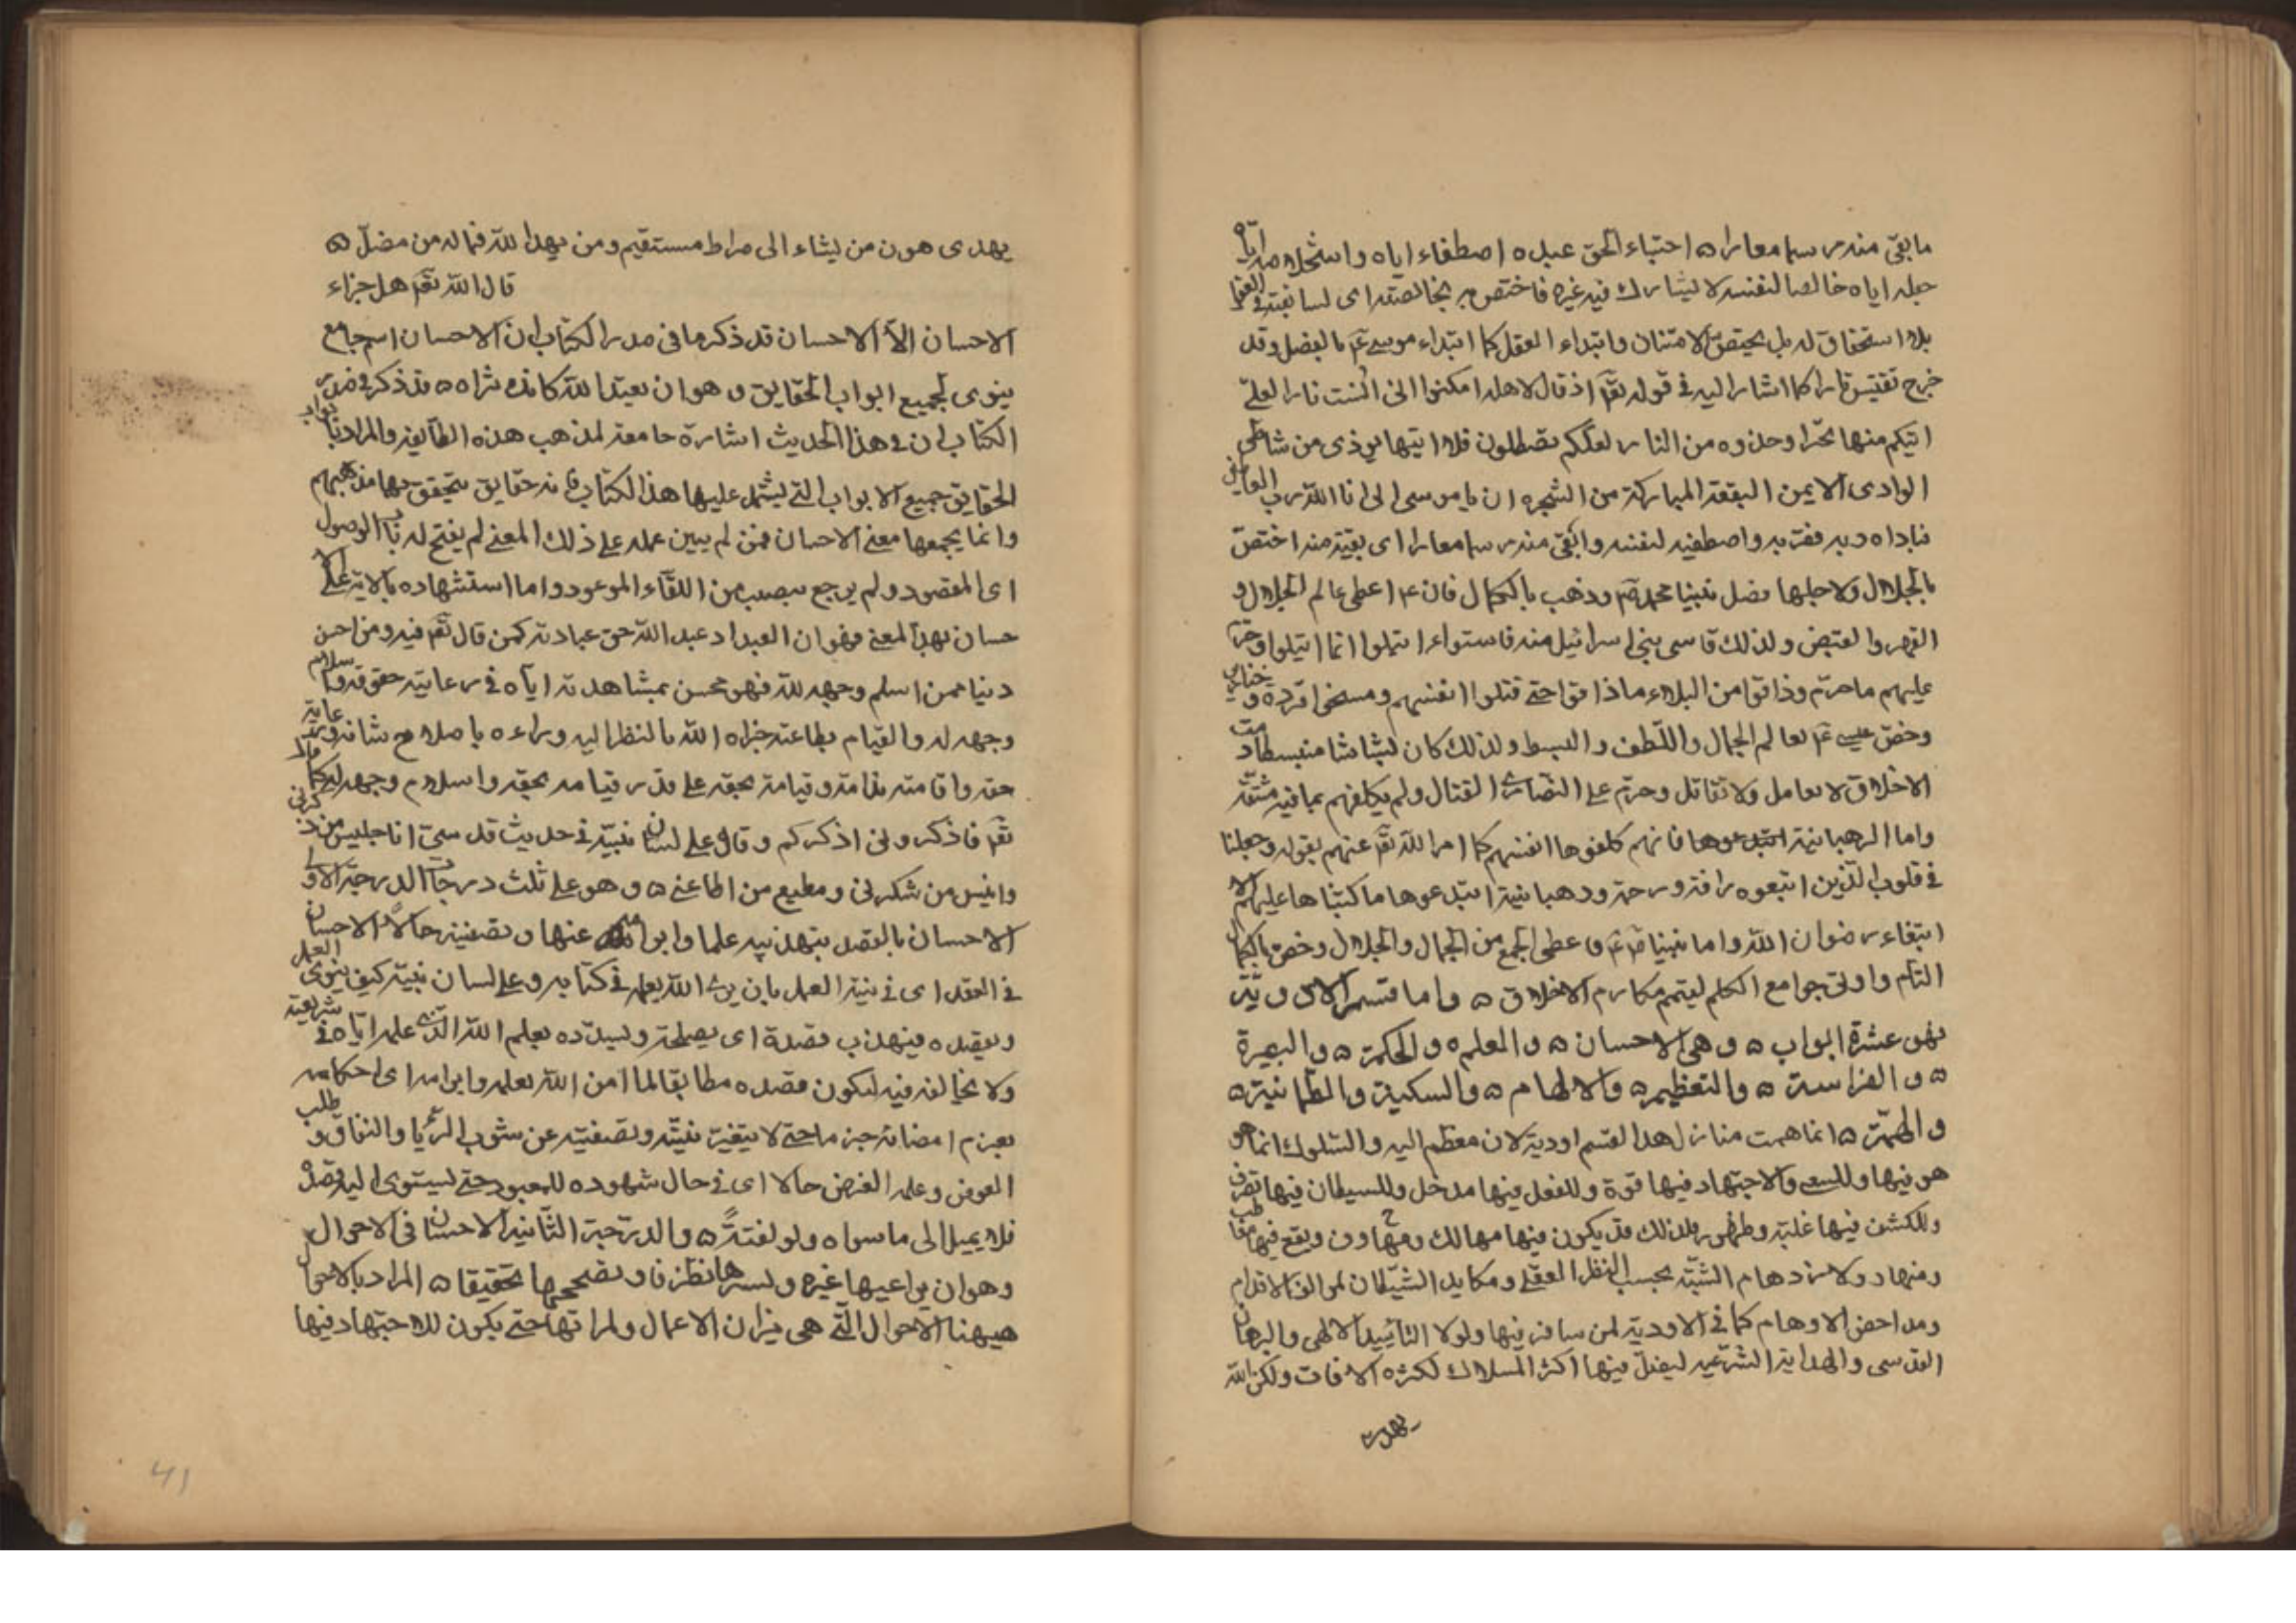 ما بقى منه رسما معارا ه اجتباء الحق عبده اصطفاءه اياه واستخلاصه اياه
جعله اياه خالصا لنفسه لا يشارك فيه غيره فاختص به بخالصته اى لسابقته فى القضا
بلا استحقاق له بل بمحض الامتنان وابتداء الفضل كما ابتداء موسى عم بالفضل وقد
خرج تقتبس نارا كما اشار اليه فى قوله تعم اذ قال لاهله امكثوا انى انست نارا لعلى
اتيكم منها بخبر او جذوة من النار لعلكم تصطلون فلما اتيها نودى من شاطى
الوادى الايمن البقعة المباركة من الشجرة ان يا موسى انى انا الله رب العالمين
فناداه وبه فقربه واصطفيه لنفسه وابقى منه رسما معارا اى بقية منه اختص
بالجلال ولاجلها فضل نبينا محمد صم وذهب بالكمال فان عم اعطى عالم الجلال و
القهر والقبض ولذلك قاسى بنى اسرائيل منه
عليهم ما حرم وذاقوا من البلاء ما ذاقوا حتى قتلوا انفسهم ومسخوا قردة وخنازير
وخص عيسى عم بعالم الجمال واللطف والبسط ولذلك كان بشاشا منبسطا دمث
الاخلاق لا يعامل ولا يقاتل وحرم على النصارى القتال ولم يكلفهم بما فيه مشقة
واما الرهبانية ابتدعوها فانهم كلفوها انفسهم كما امر الله تعم عنهم بقوله وجعلنا
فى قلوب الذين اتبعوه رافة ورحمة ورهبانية ابتدعوها ما كتبناها عليهم الا
ابتغاء رضوان الله واما نبينا صم عم فاعطى الجمع من الجمال والجلال وخص بالكمال
التام واوتى جوامع الكلم ليتمم مكارم الاخلاق ه واما قسم الاودية
فهو عشرة ابواب ه وهى الاحسان ه والعلم ه والحكمة ه والبصيرة
ه والفراسة ه والتعظيم ه والالهام ه والسكينة والطمانينة ه
والهمة ه انما سميت منازل هذا القسم اودية لان معظم السير والسلوك انما هو
هو فيها وللسعى والاجتهاد فيها قوة وللعقل فيها مدخل وللشيطان فيها تصرف
وللكشف فيها غلبة وظهور فلذلك قد يكون فيها مهالك ومهاوى ويقع فيها
ومنها ولازدحام الشبه بحسب النظر العقلى ومكايد الشيطان مزالق الاقدام
ومداحض الاوهام كما فى الاودية لمن سافر فيها ولولا التاييد الالهى والبرهان
القدسى والهداية الشرعية ليضل فيها اكثر السلاك لكثرة الافات ولكن الله
يهدى
يهدى هو من يشاء الى صراط مستقيم ومن يهد الله فما له من مضل ه
قال الله تعم هل جزاء
الاحسان الا الاحسان قد ذكرنا فى صدر الكتاب ان الاحسان اسم جامع
ينوى لجميع ابواب الحقايق وهو ان تعبد الله كانك تراه ه قد ذكر فى صدر
الكتاب ان فى هذا الحديث اشارة جامعة لمذهب هذه الطايفة والمراد بابواب
الحقايق جميع الابواب التى يشتمل عليها هذا الكتاب فانه حقايق يتحقق بها مذهبهم
وانما يجمعها معنى الاحسان فمن لم يبين عمله على ذلك المعنى لم يفتح له باب الوصول
اى المقصود ولم يرجع بنصيب من اللقاء الموعود واما استشهاده بالاية على الا
حسان بهذا المعنى فهو ان العبد اذ عبد الله حق عبادته كمن قال تعم فيه ومن احسن
دينا ممن اسلم وجهه لله فهو محسن بمشاهدته اياه فى رعاية حقوقه واسلام
وجهه له والقيام بطاعته جزاه الله بالنظر اليه وبراءه باصلاح شانه ورعاية
حقه واقامته بذاته وقيامه بحقه على قدر قيامه بحقه واسلام وجهه اليه كما قال
تعم فاذكرونى اذكركم وقال على لسان نبيه فى حديث قدسى انا جليس من ذكرنى
وانيس من شكرنى ومطيع من اطاعنى ه وهو على ثلث درجات الدرجة الاولى
الاحسان بالقصد بتهذيبه علما وابرامه عزما وتصفيته حالا الاحسان
فى القصد اى فى نية العمل بان يرى الله يعلم فى كتابه وعلى لسان نبيه كيف ينوى العمل
ويقصده فيهذب قصده اى يصلحه ويسدده بعلم الله الذى علمه اياه فى شريعته
ولا يخالفه فيه ليكون قصده مطابقا لما امن الله بعلمه وابرامه اى احكامه
بعزم امضائه جزما حتى لا يتغير نيته وتصفيته عن شوب الريا والنفاق و طلب
العوض وعلة الغرض حالا اى فى حال شهوده للمعبود حتى يستوى اليه قصده
فلا يميل الى ما سواه ولو لفتة ه والدرجة الثانية الاحسان فى الاحوال
وهو ان يراعيها غيرة ويسترها تظرفا وتصحيحها تحقيقا ه المراد بالاحوال
هيهنا الاحوال التى هى ميزان الاعمال وثمراتها حتى يكون للاجتهاد فيها